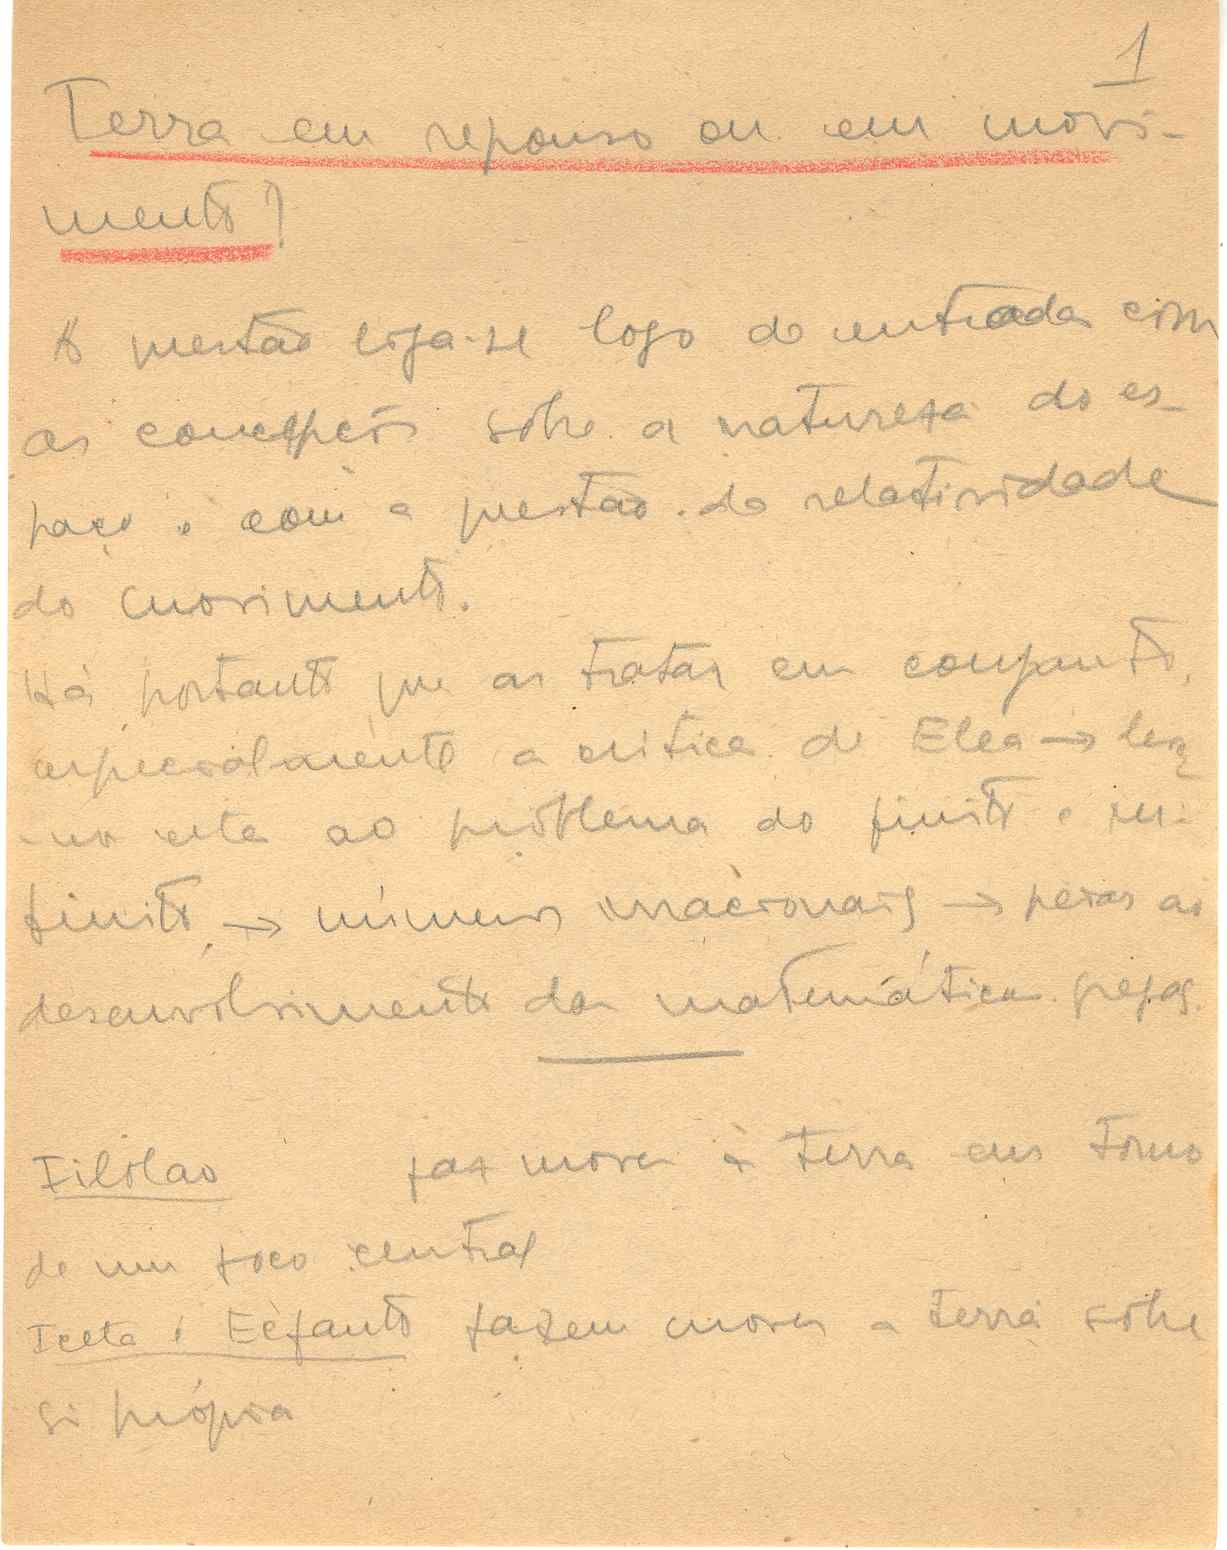 1
Terra em repouso ou em movi-
mento?
A questão liga-se logo de entrada com
as concepções sôbre a natureza do es-
paço e com a questão da relatividade
do movimento.
Há portanto que as tratar em conjunto,
especialmente a crítica de Elea →
-nos esta ao problema do finito e in-
finito → números irracionais → ao
desenvolvimento da matemática grega.
Filolao faz mover a terra em torno
de um foco central
Iceta e Ecfanto fazem mover a terra sôbre
si própria